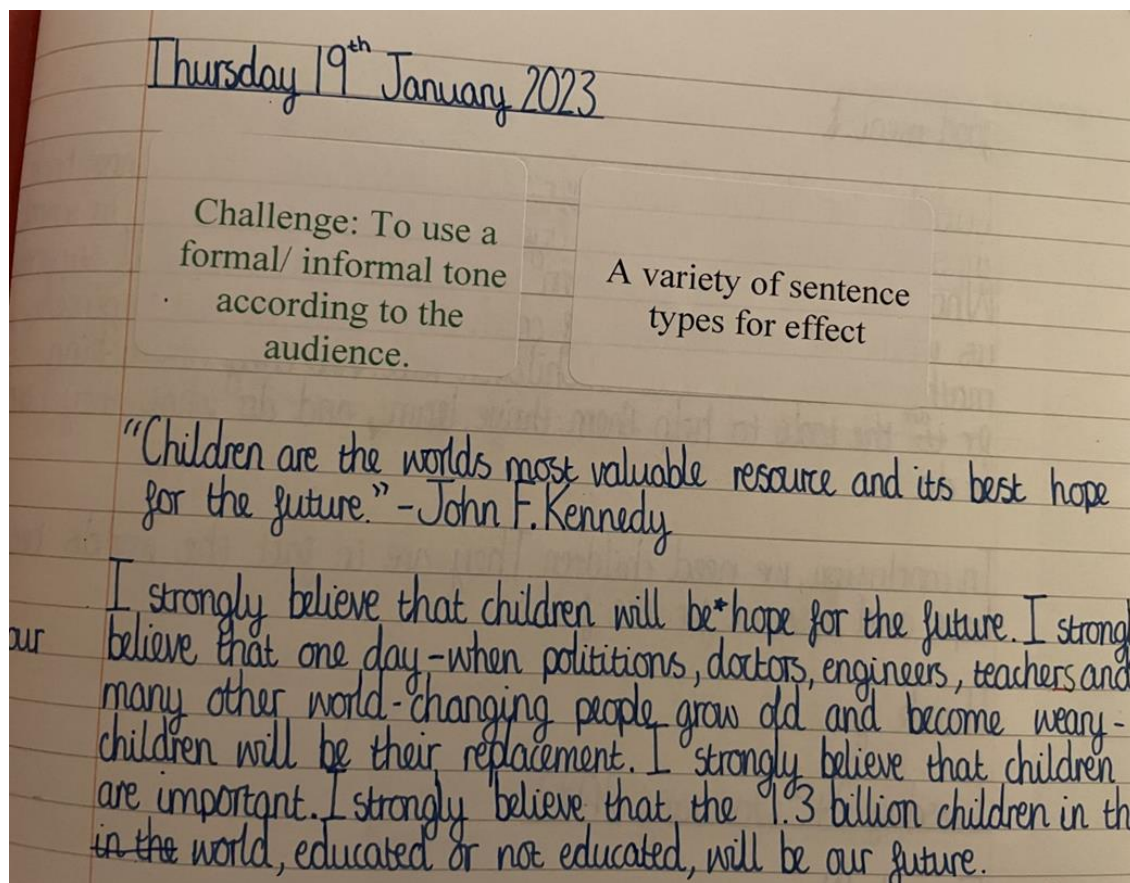 Thursday 19th January 2023
Challenge: To use a
formal/ informal tone
according to the
audience.
A variety of sentence
types for effect
"Children are the worlds most valuable resource and its best hope
for the future." - John F. Kennedy
I strongly believe that children will be* hope for the future. I strongl
our
believe that one day - when polititions, doctors, engineers, teachers and
many other world-changing people grow old and become weary -
children will be their replacement. I strongly believe that children
are important. I strongly believe that the 1.3 billion children in th
in the world, educated or not educated, will be our future.